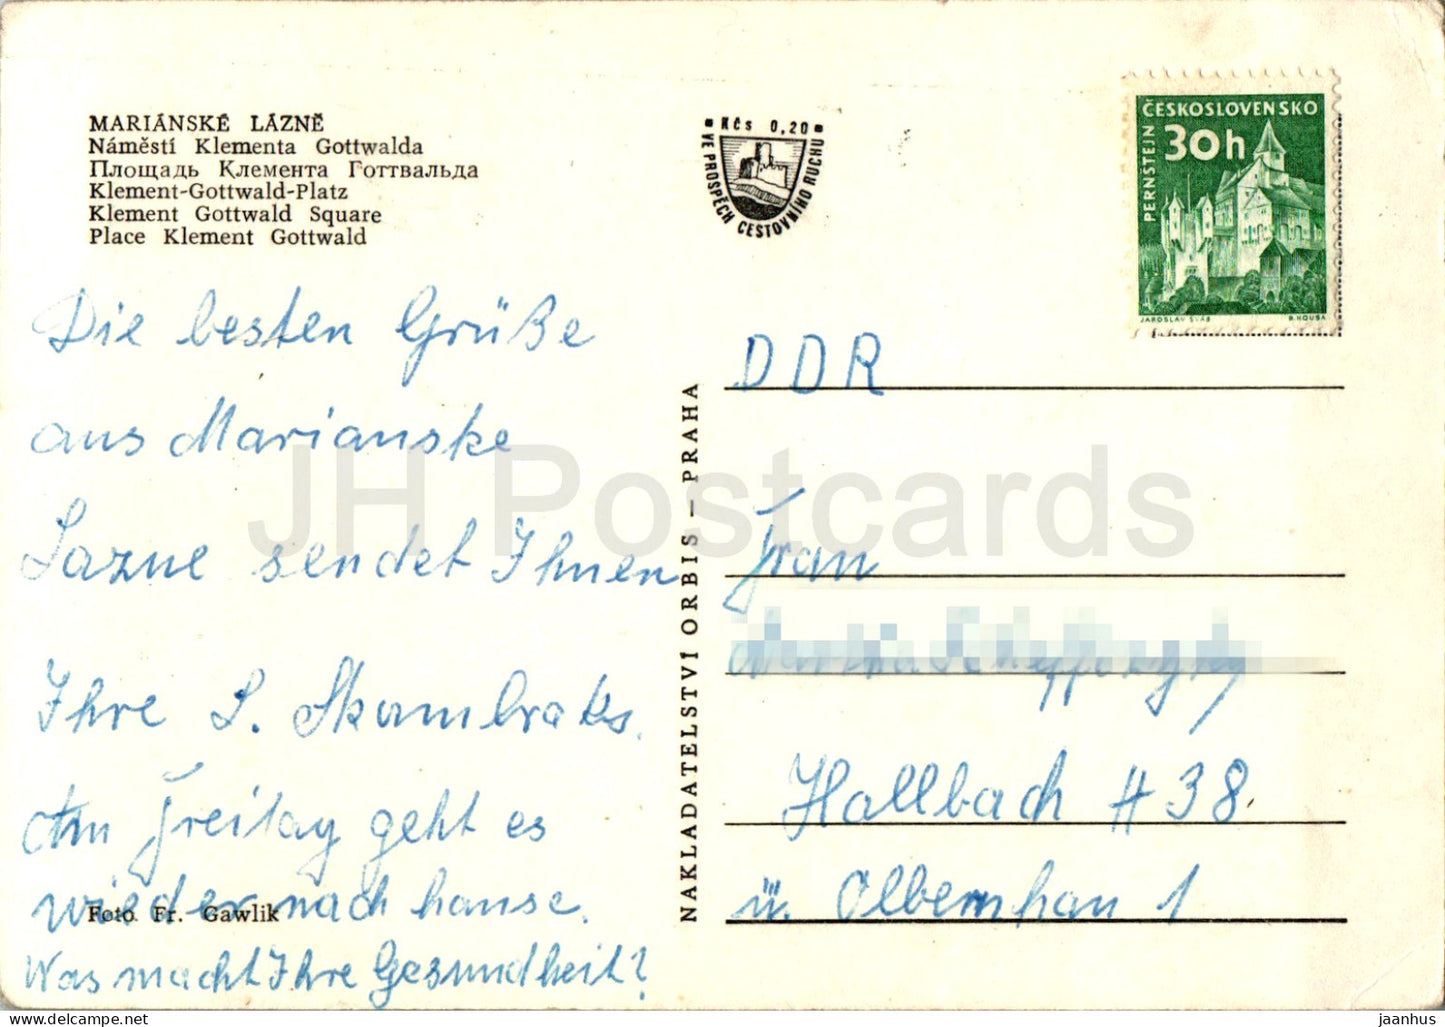 MARIÁNSKÉ LÁZNĚ
Náměstí Klementa Gottwalda
Площадь Клемента Готтвальда
Klement-Gottwald-Platz
Klement Gottwald Square
Place Klement Gottwald
Kčs 0,20
VE PROSPĚCH CESTOVNÍHO RUCHU
ČESKOSLOVENSKO
30h
PERNŠTEJN
JAROSLAV ŠVÁB
B. HOUSA
Die besten Grüße
aus Marianske
Lazne sendet Ihnen
Ihre S. Skambraks.
Am Freitag geht es
wieder nach hause.
Was macht Ihre Gesundheit?
Foto Fr. Gawlik
NAKLADATELSTVÍ ORBIS — PRAHA
DDR
Frau
Hallbach # 38.
ü. Olbernhau 1
JH Postcards
www.delcampe.net
jaanhus